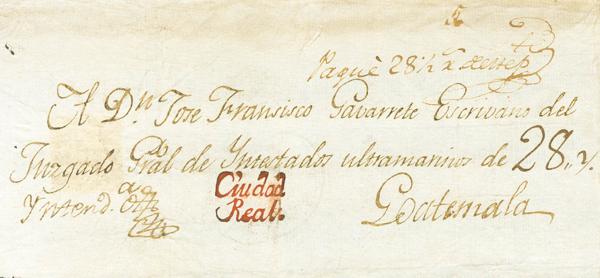 Paguè 28 1/2 r
A Dn. Jose Fransisco Gavarrete Escrivano del
Juzgado Gral de Yntestados ultramarinos de 28
Yntend.a
Ciudad
Real.
Goatemala